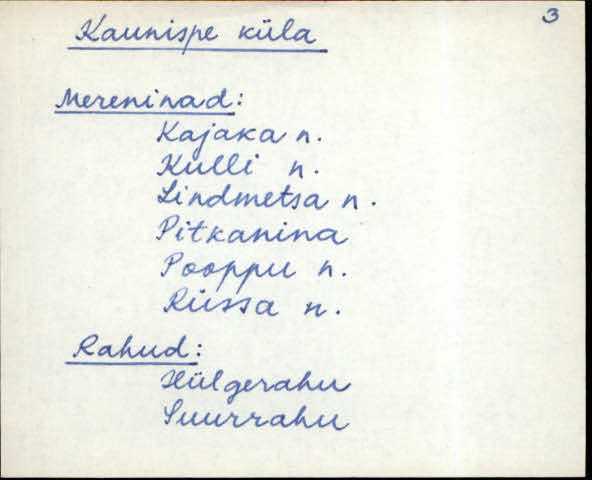 3
Kaunispe küla
Mereninad:
Kajaka n.
Kulli n.
Lindmetsa n.
Pitkanina
Pooppu n.
Rüssa n.
Rahud:
Hülgerahu
Suurrahu